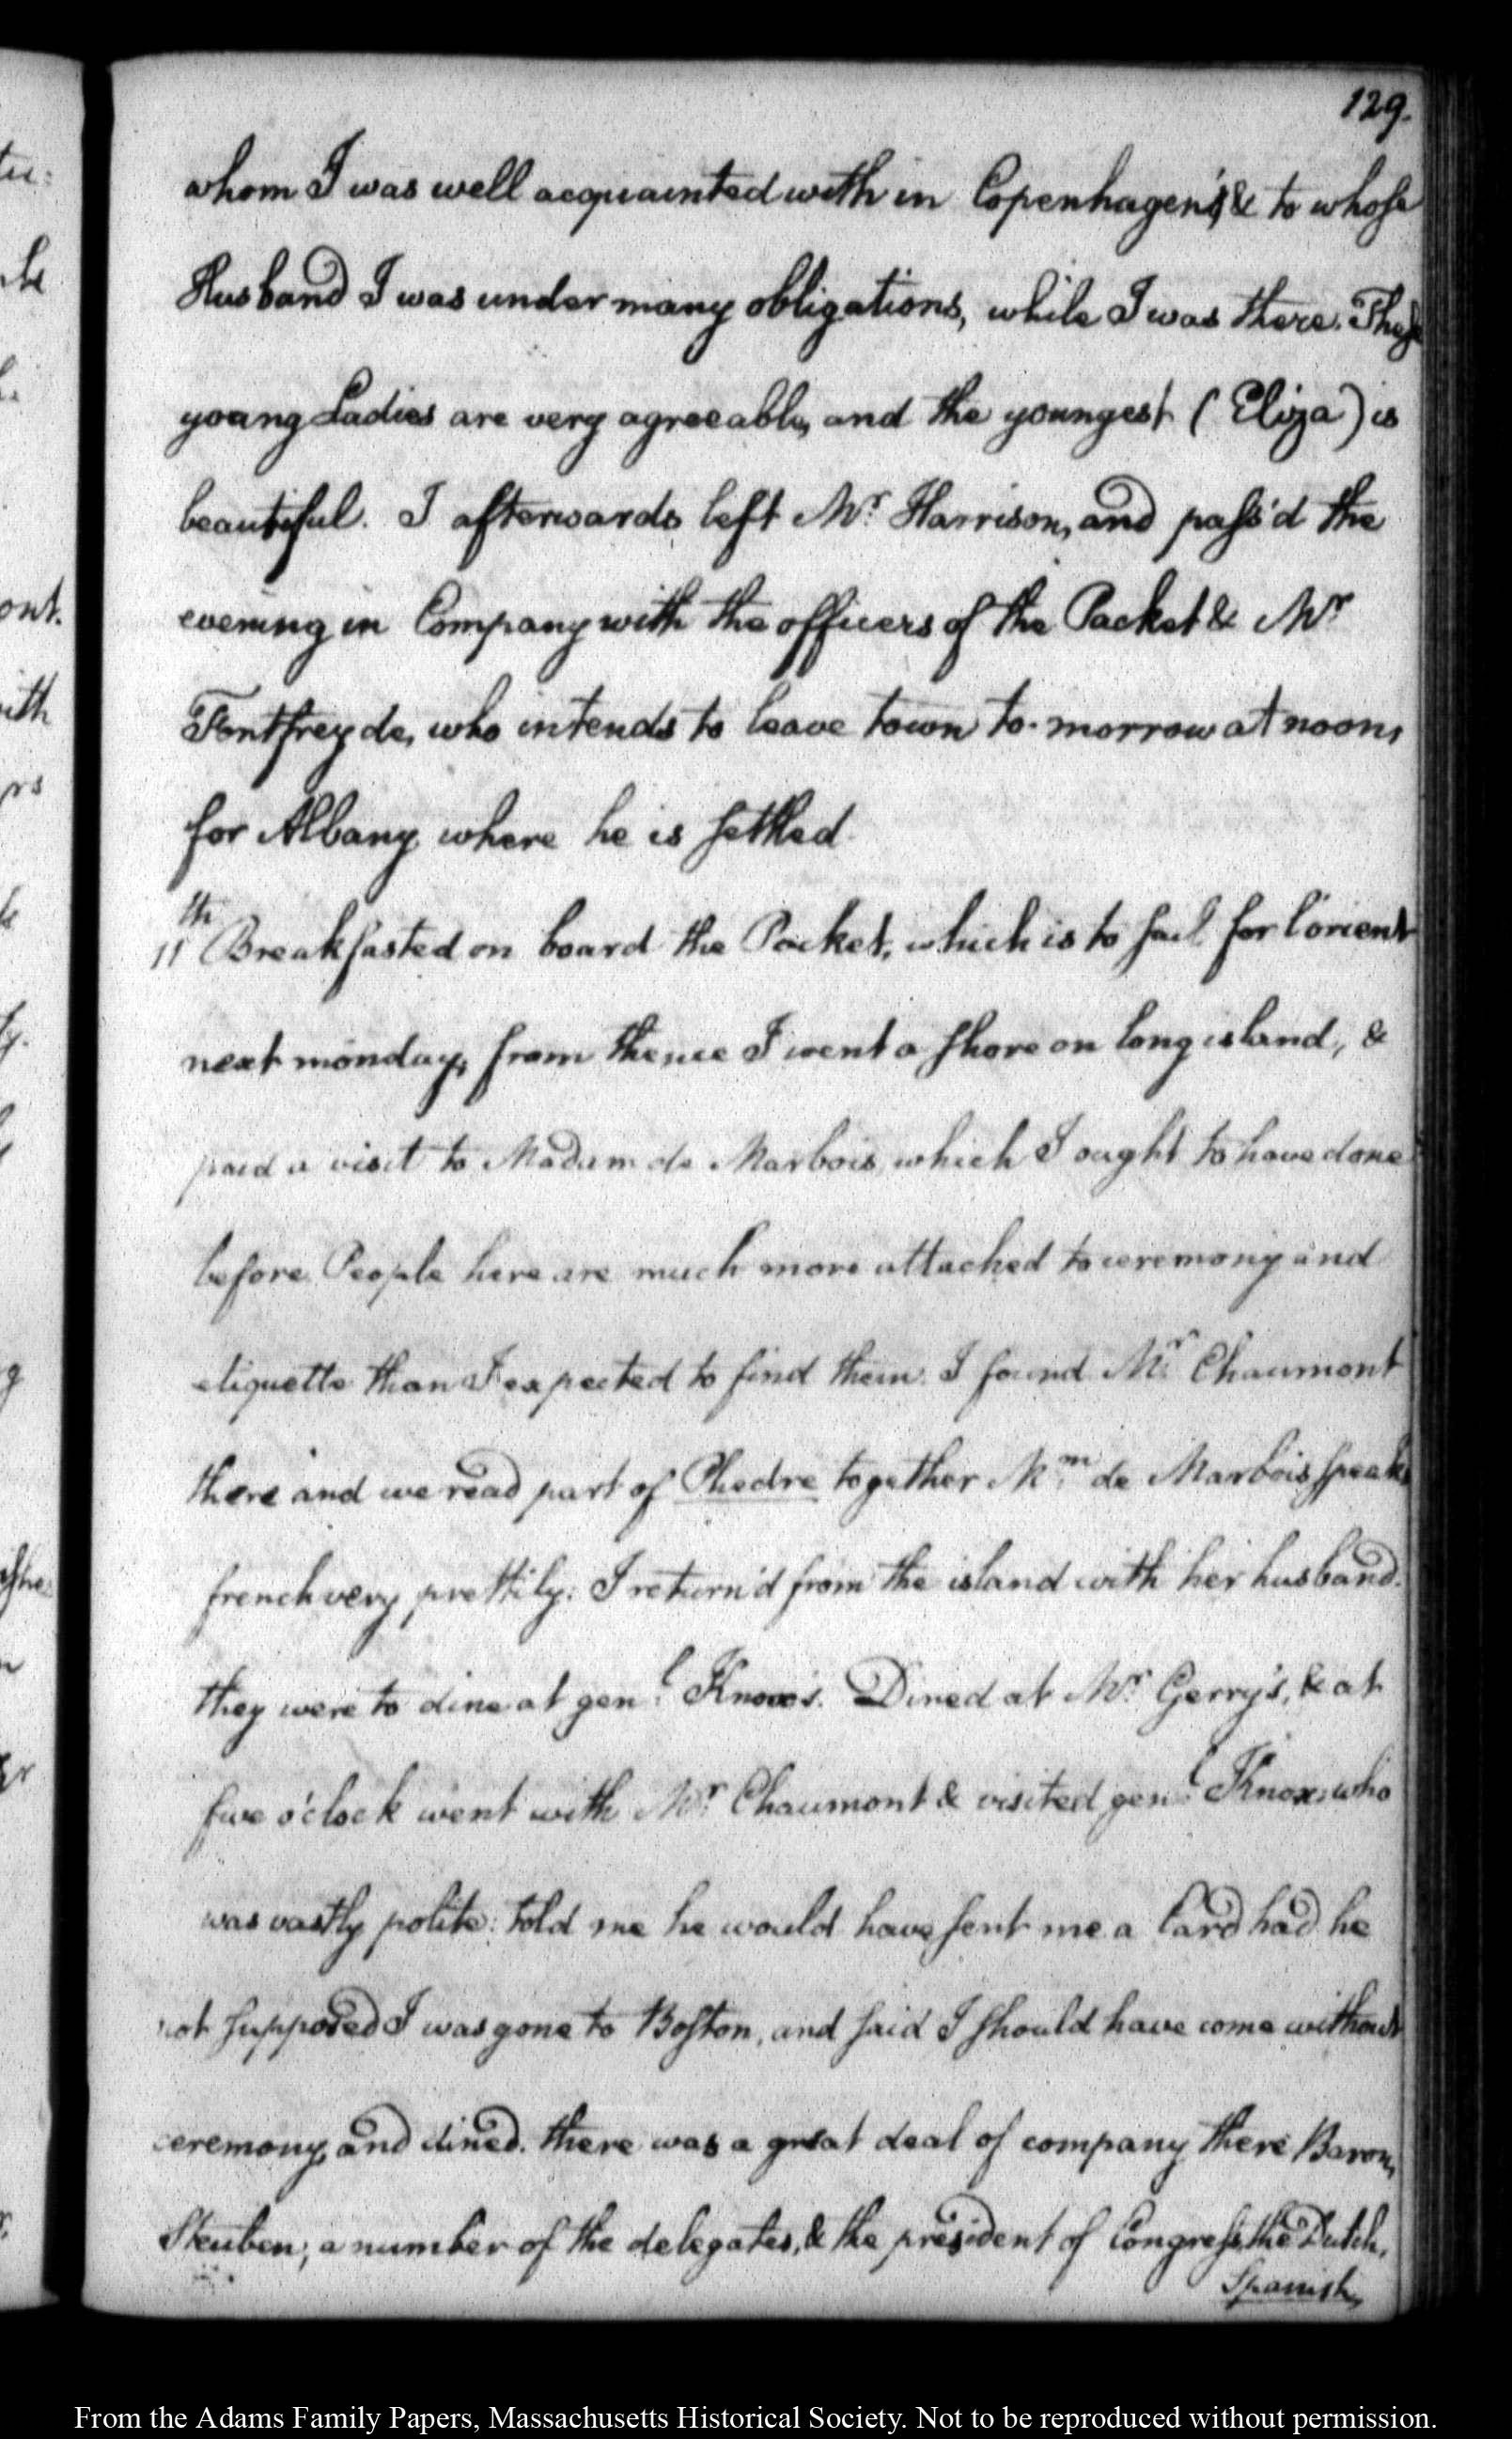 129.
whom I was well acquainted with in Copenhagen; & to whose
Husband I was under many obligations, while I was there. These
young Ladies are very agreeable, and the youngest (Eliza) is
beautiful. I afterwards left Mr. Harrison, and pass'd the
evening in Company with the officers of the Packet & Mr
Fontfreyde, who intends to leave town to-morrow at noon,
for Albany where he is settled.
11th Breakfasted on board the Packet, which is to sail for l'orient
next monday, from thence I went a shore on long island, &
paid a visit to Madam de Marbois, which I ought to have done
before. People here are much more attached to ceremony and
etiquette than I expected to find them. I found Mr. Chaumont
there and we read part of Phedre together Mm. de Marbois speaks
french very prettily: I return'd from the island with her husband.
they were to dine at genl. Knox's. Dined at Mr. Gerry's, & at
five o'clock went with Mr. Chaumont & visited genl. Knox, who
was vastly polite: told me he would have sent me a Card had he
not supposed I was gone to Boston, and said I should have come without
ceremony, and dined. there was a great deal of company there Baron,
Steuben, a number of the delegates, & the president of Congress, the Dutch,
Spanish,
tu:
ont.
ith
rs
From the Adams Family Papers, Massachusetts Historical Society. Not to be reproduced without permission.